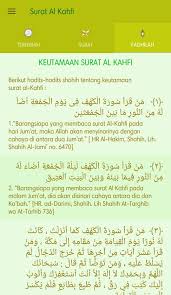 Surat Al Kahfi
TERJEMAH
SURAT
FADHILAH
KEUTAMAAN SURAT AL KAHFI
Berikut hadits-hadits shohih tentang keutamaan
surat al-Kahfi :
(١)- مَنْ قَرَأَ سُورَةَ الْكَهْفِ فِي يَوْمِ الْجُمُعَةِ أَضَاءَ
لَهُ مِنَ النُّورِ مَا بَيْنَ الْجُمُعَتَيْنِ
1."Barangsiapa yang membaca surat Al-Kahfi pada
hari Jum'at, maka Allah akan menyinarinya dengan
cahaya di antara dua jum'at." [HR Al-Hakim, Shohih, Lih.
Shahih Al-Jami' no: 6470]
(٢)- مَنْ قَرَأَ سُورَةَ الْكَهْفِ لَيْلَةَ الْجُمُعَةِ أَضَاءَ لَهُ
مِنَ النُّورِ فِيمَا بَيْنَهُ وَبَيْنَ الْبَيْتِ الْعَتِيقِ
2. "Barangsiapa yang membaca surat Al-Kahfi pada
malam Jum'at, dia akan disinari cahaya antara dia dan
Ka'bah." [HR. ad-Darimi, Shohih, Lih Shahih At-Targhib
wa At-Tarhib 736]
(٣)- مَنْ قَرَأَ سُورَةَ الْكَهْفِ كَمَا أُنْزِلَتْ ، كَانَتْ
لَهُ نُورًا يَوْمَ الْقِيَامَةِ مِنْ مَقَامِهِ إِلَى مَكَّةَ ، وَمَنْ
قَرَأَ عَشْرَ آيَاتٍ مِنْ آخِرِهَا ثُمَّ خَرَجَ الدَّجَّالُ لَمْ